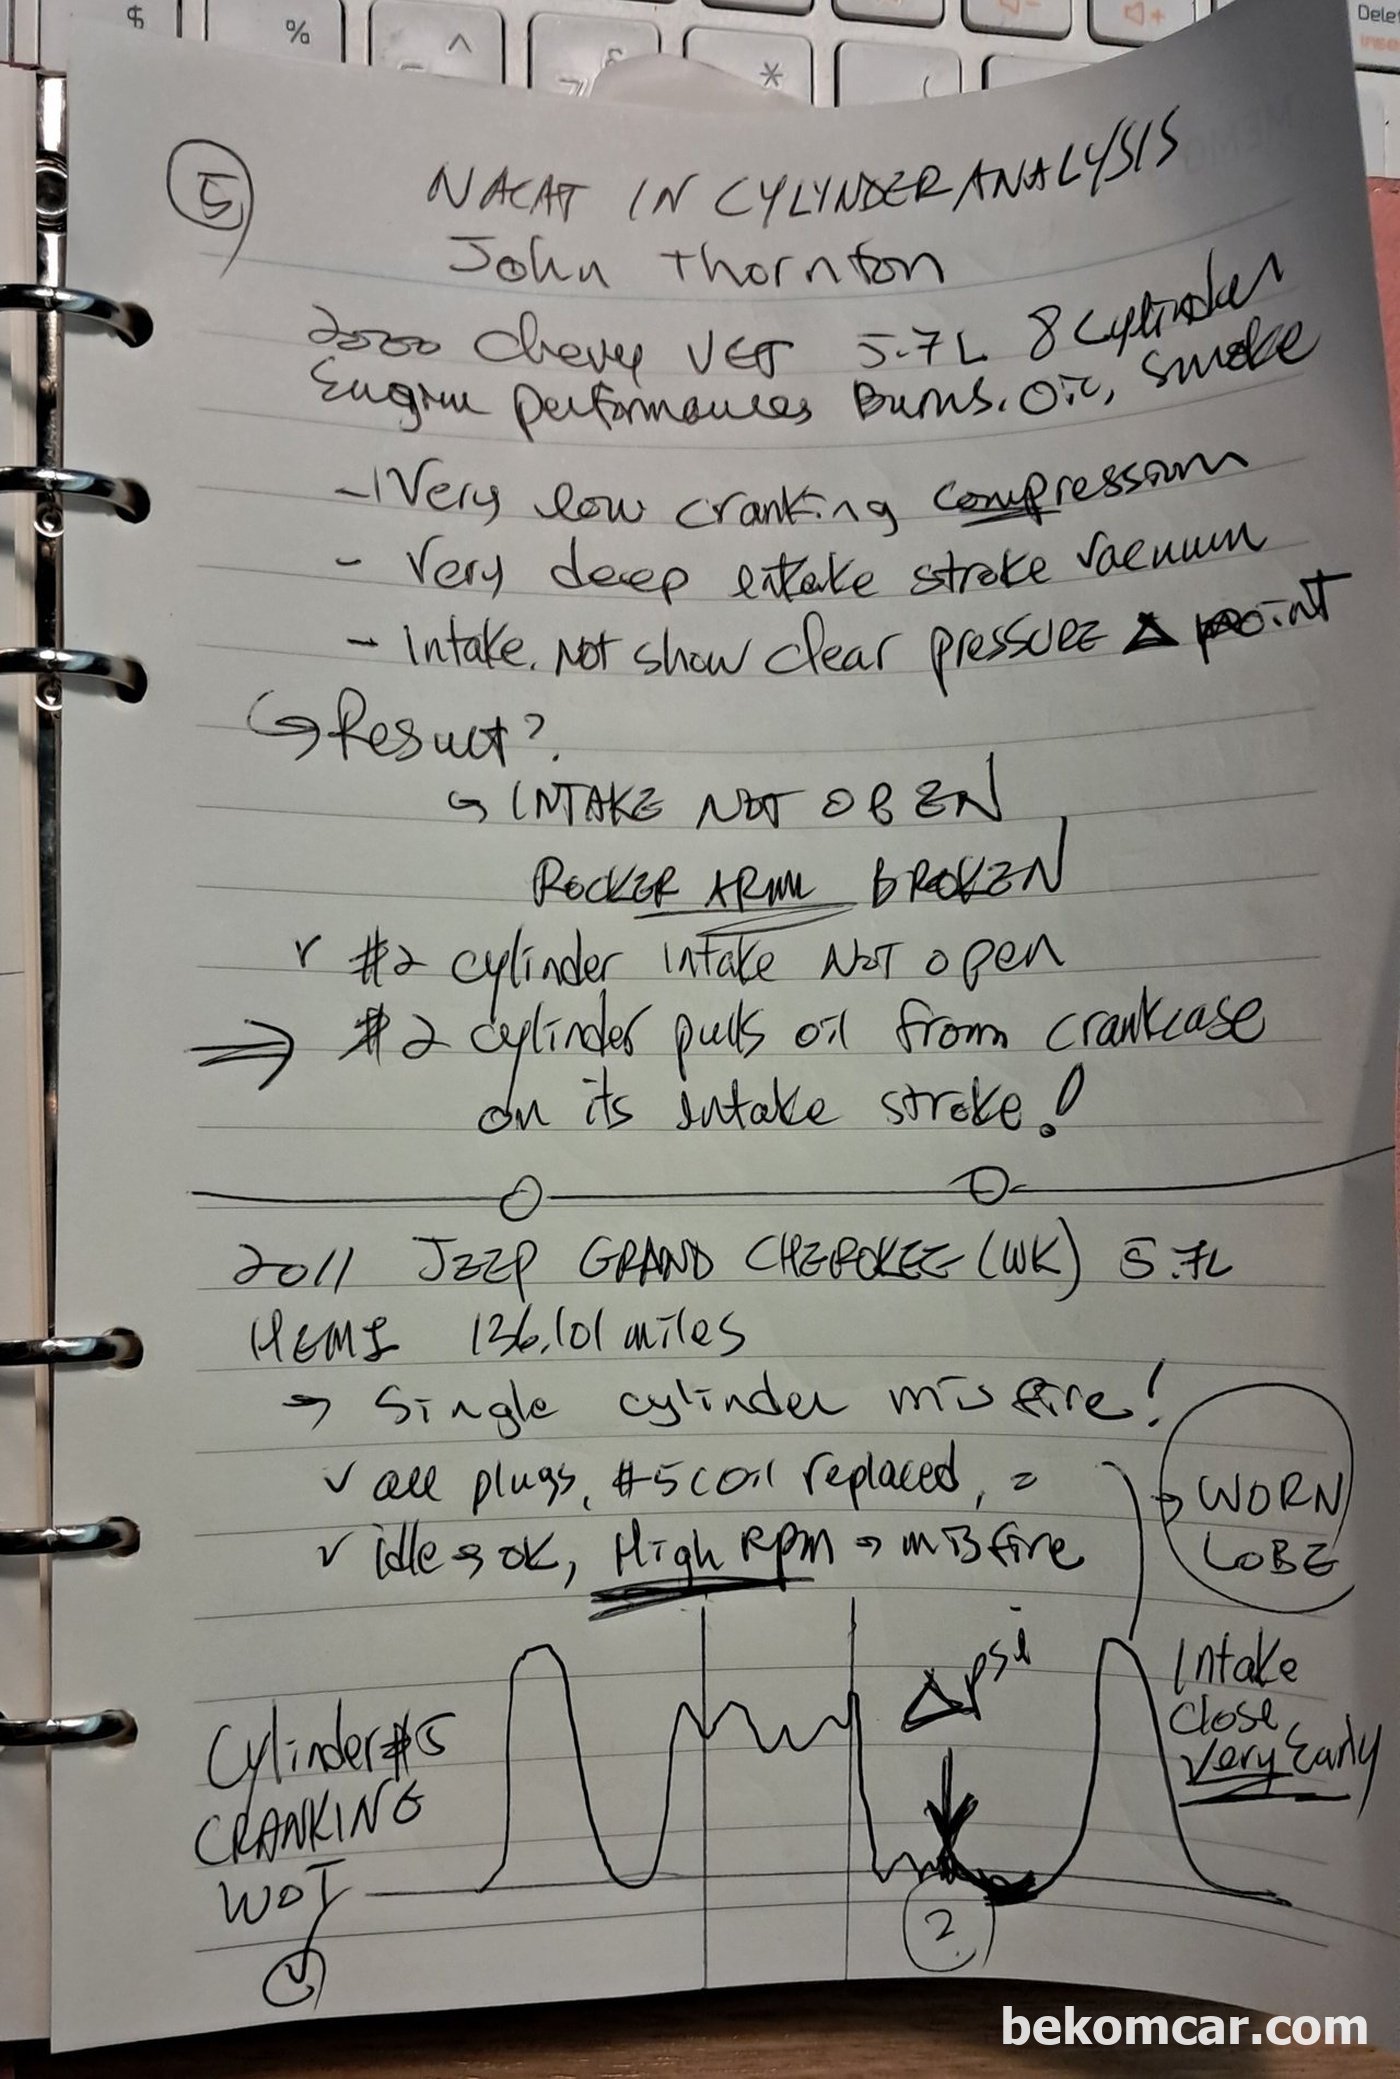 5
NACAT IN CYLYNDER ANALYSIS
John Thornton
2000 Chevy VET 5.7L 8 Cylinder
Engine performances Burns. Oil, Smoke
- Very low cranking compression
- Very deep intake stroke vacuum
- Intake. Not show clear pressure Δ point
↳ Result?
↳ INTAKE NOT OPEN
ROCKER ARM BROKEN
v #2 cylinder intake NOT open
⇒ #2 cylinder pulls oil from crankcase
on its intake stroke!
2011 JEEP GRAND CHEROKEE (WK) 5.7L
HEMI 136,101 miles
→ Single cylinder misfire!
v all plugs, #5 coil replaced, =
v idle → OK, High RPM → misfire
→ WORN
LOBE
Δ psi
Intake
close
very Early
Cylinder #5
CRANKING
WOT
2
bekomcar.com